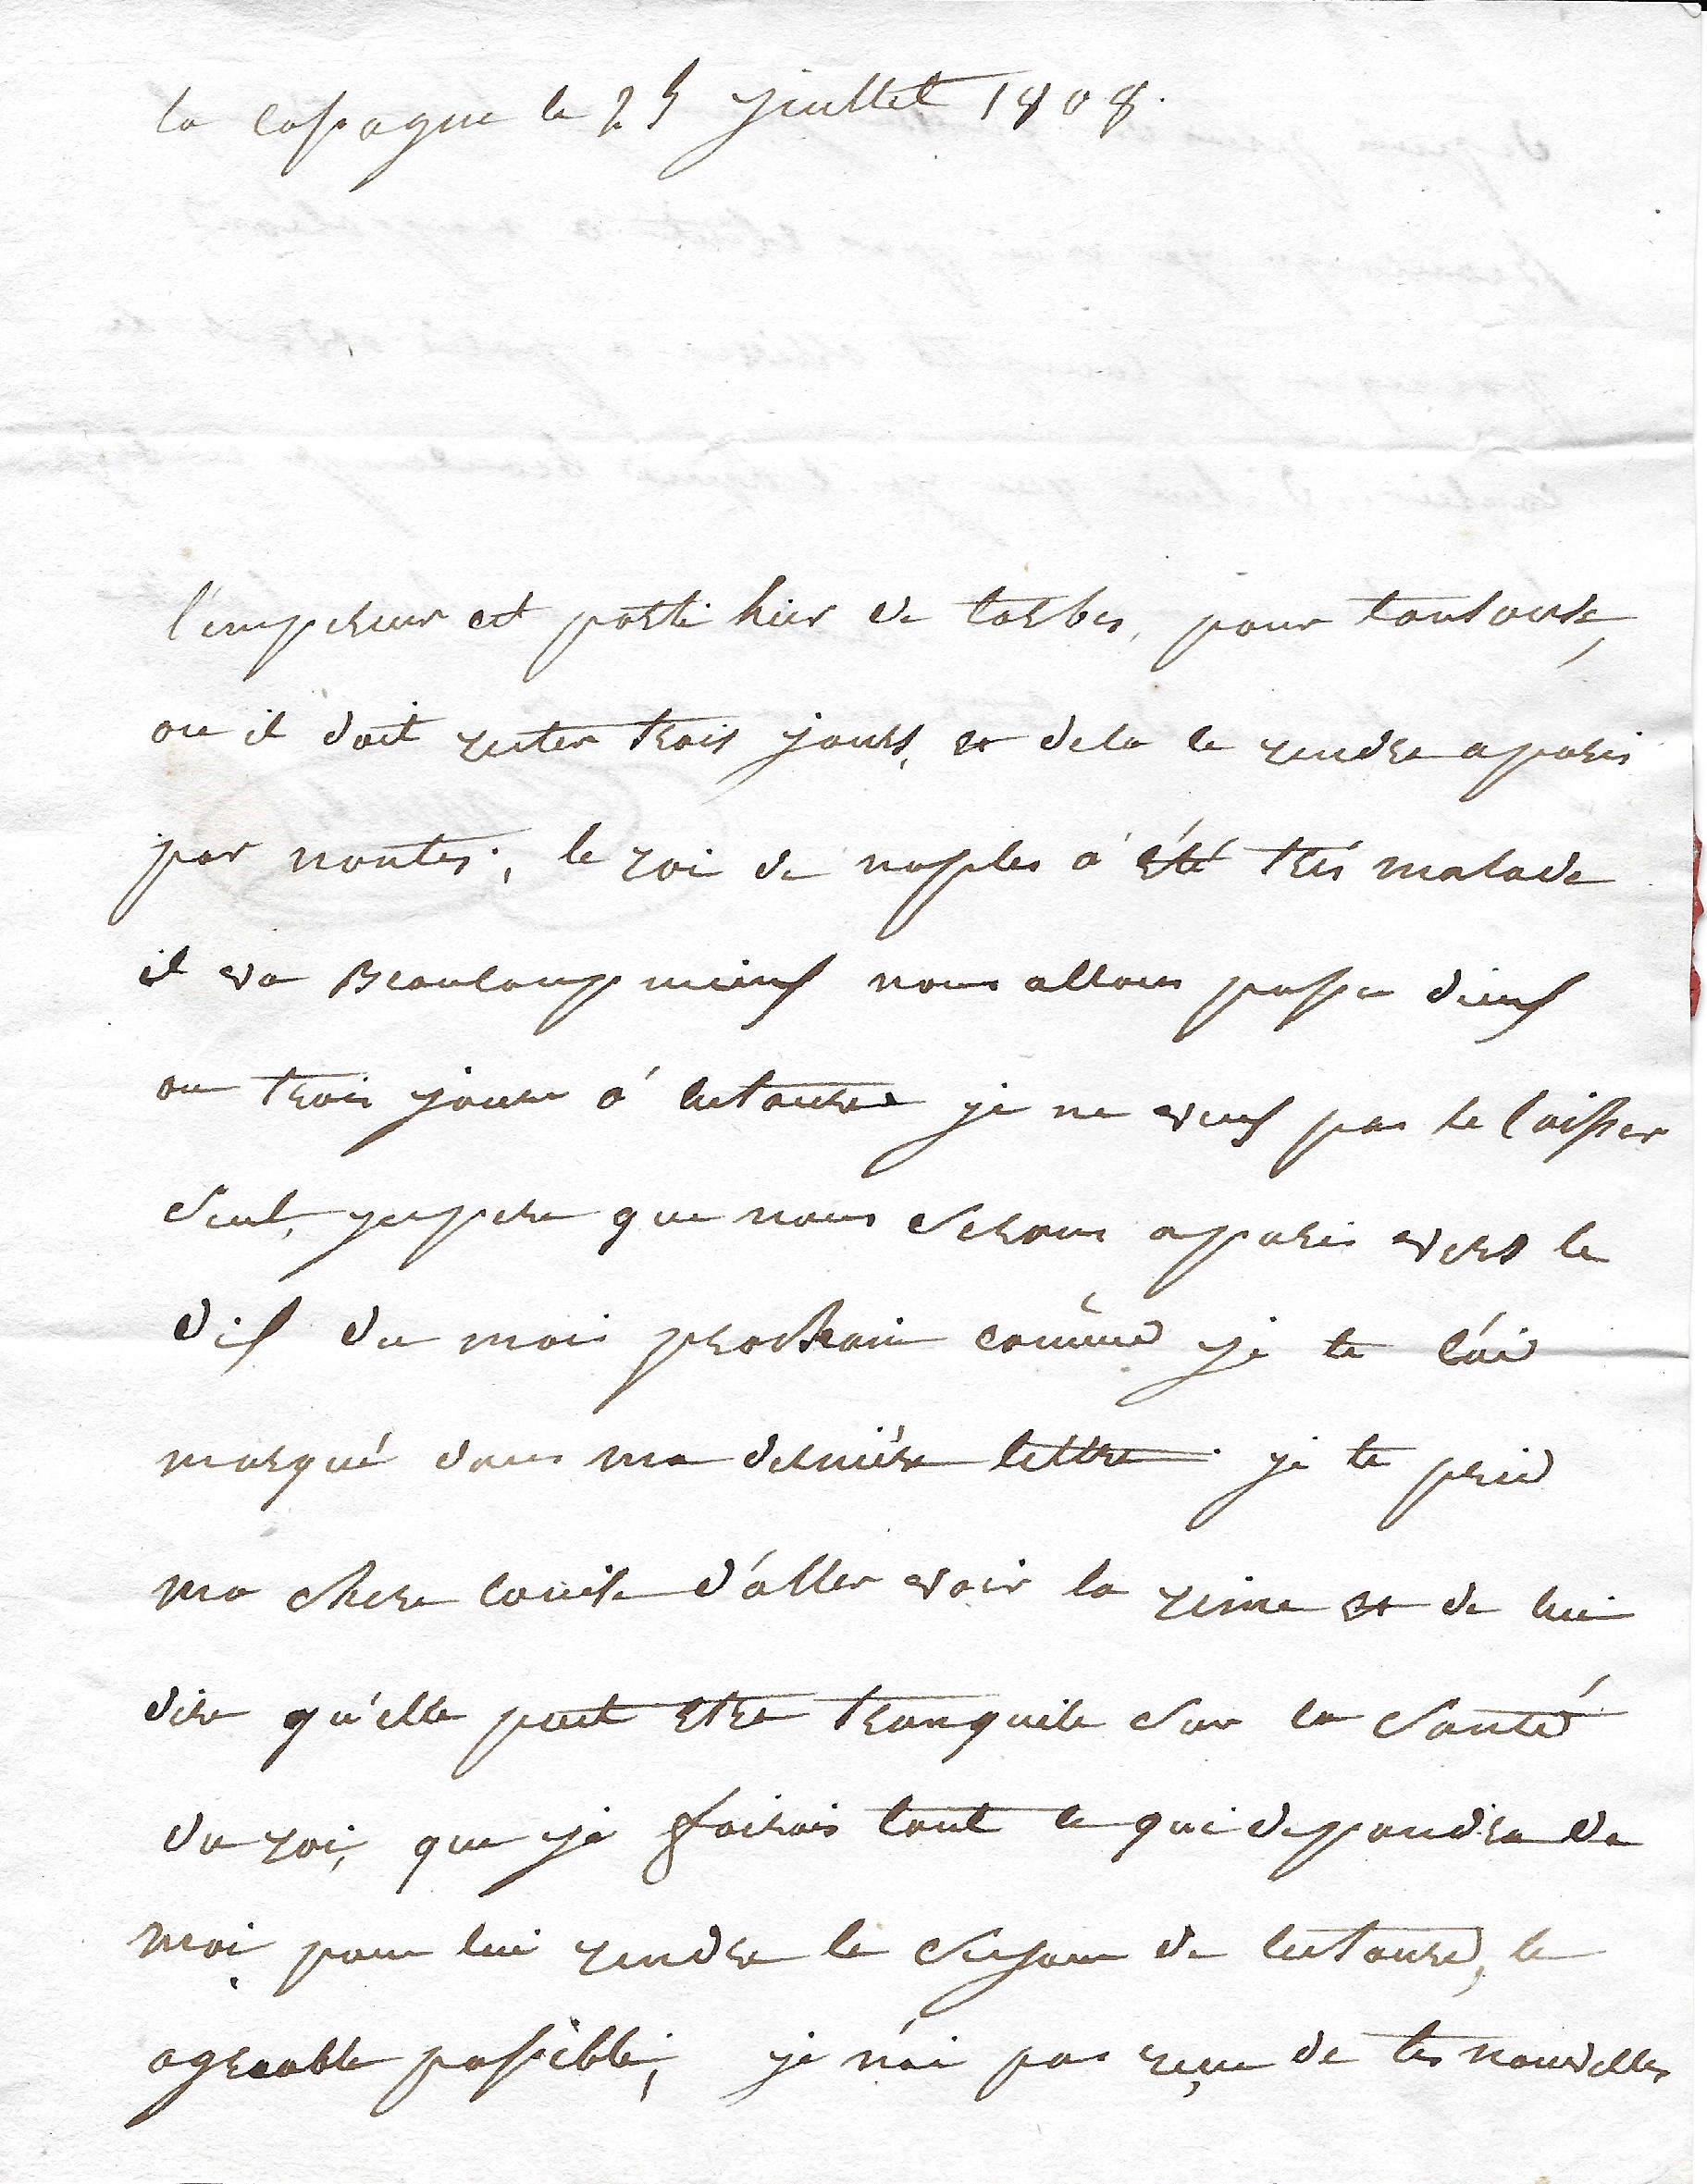 la cassagne le 25 juillet 1808.
l'empereur est parti hier de tarbes, pour toulouse,
ou il doit rester trois jours, et dela se rendre a paris
par nantes, le roi de naples á été trés malade
il va Beaucoup mieux nous allons passer deux
ou trois jours á lectoure je ne veux pas le laisser
seul, j'espere que nous serons a paris vers le
dix du mois prochain comme je te l'ái
marqué dans ma derniére lettre. je te prie
ma chere louise d'áller voir la reine et de lui
dire qu'elle peut etre tranquile sur la santé
du roi, que je fairais tout ce qui depandra de
moi pour lui rendre le sejour de lectoure, le
agreable possible, je n'ai pas reçu de tes nouvelles